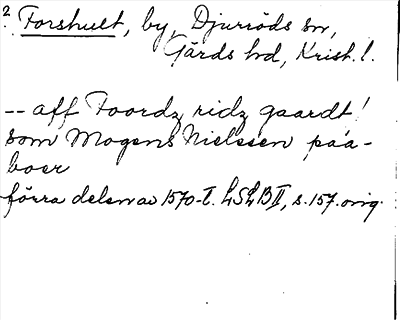 2. Forshult, by, Djuröds sn,
Gärds hd, Krist. l.
-- aff Foordz ridz gaardt!
som Mogens Nielssen paa-
boer
förra delen av 1570-t. LSLB II, s. 157. orig.